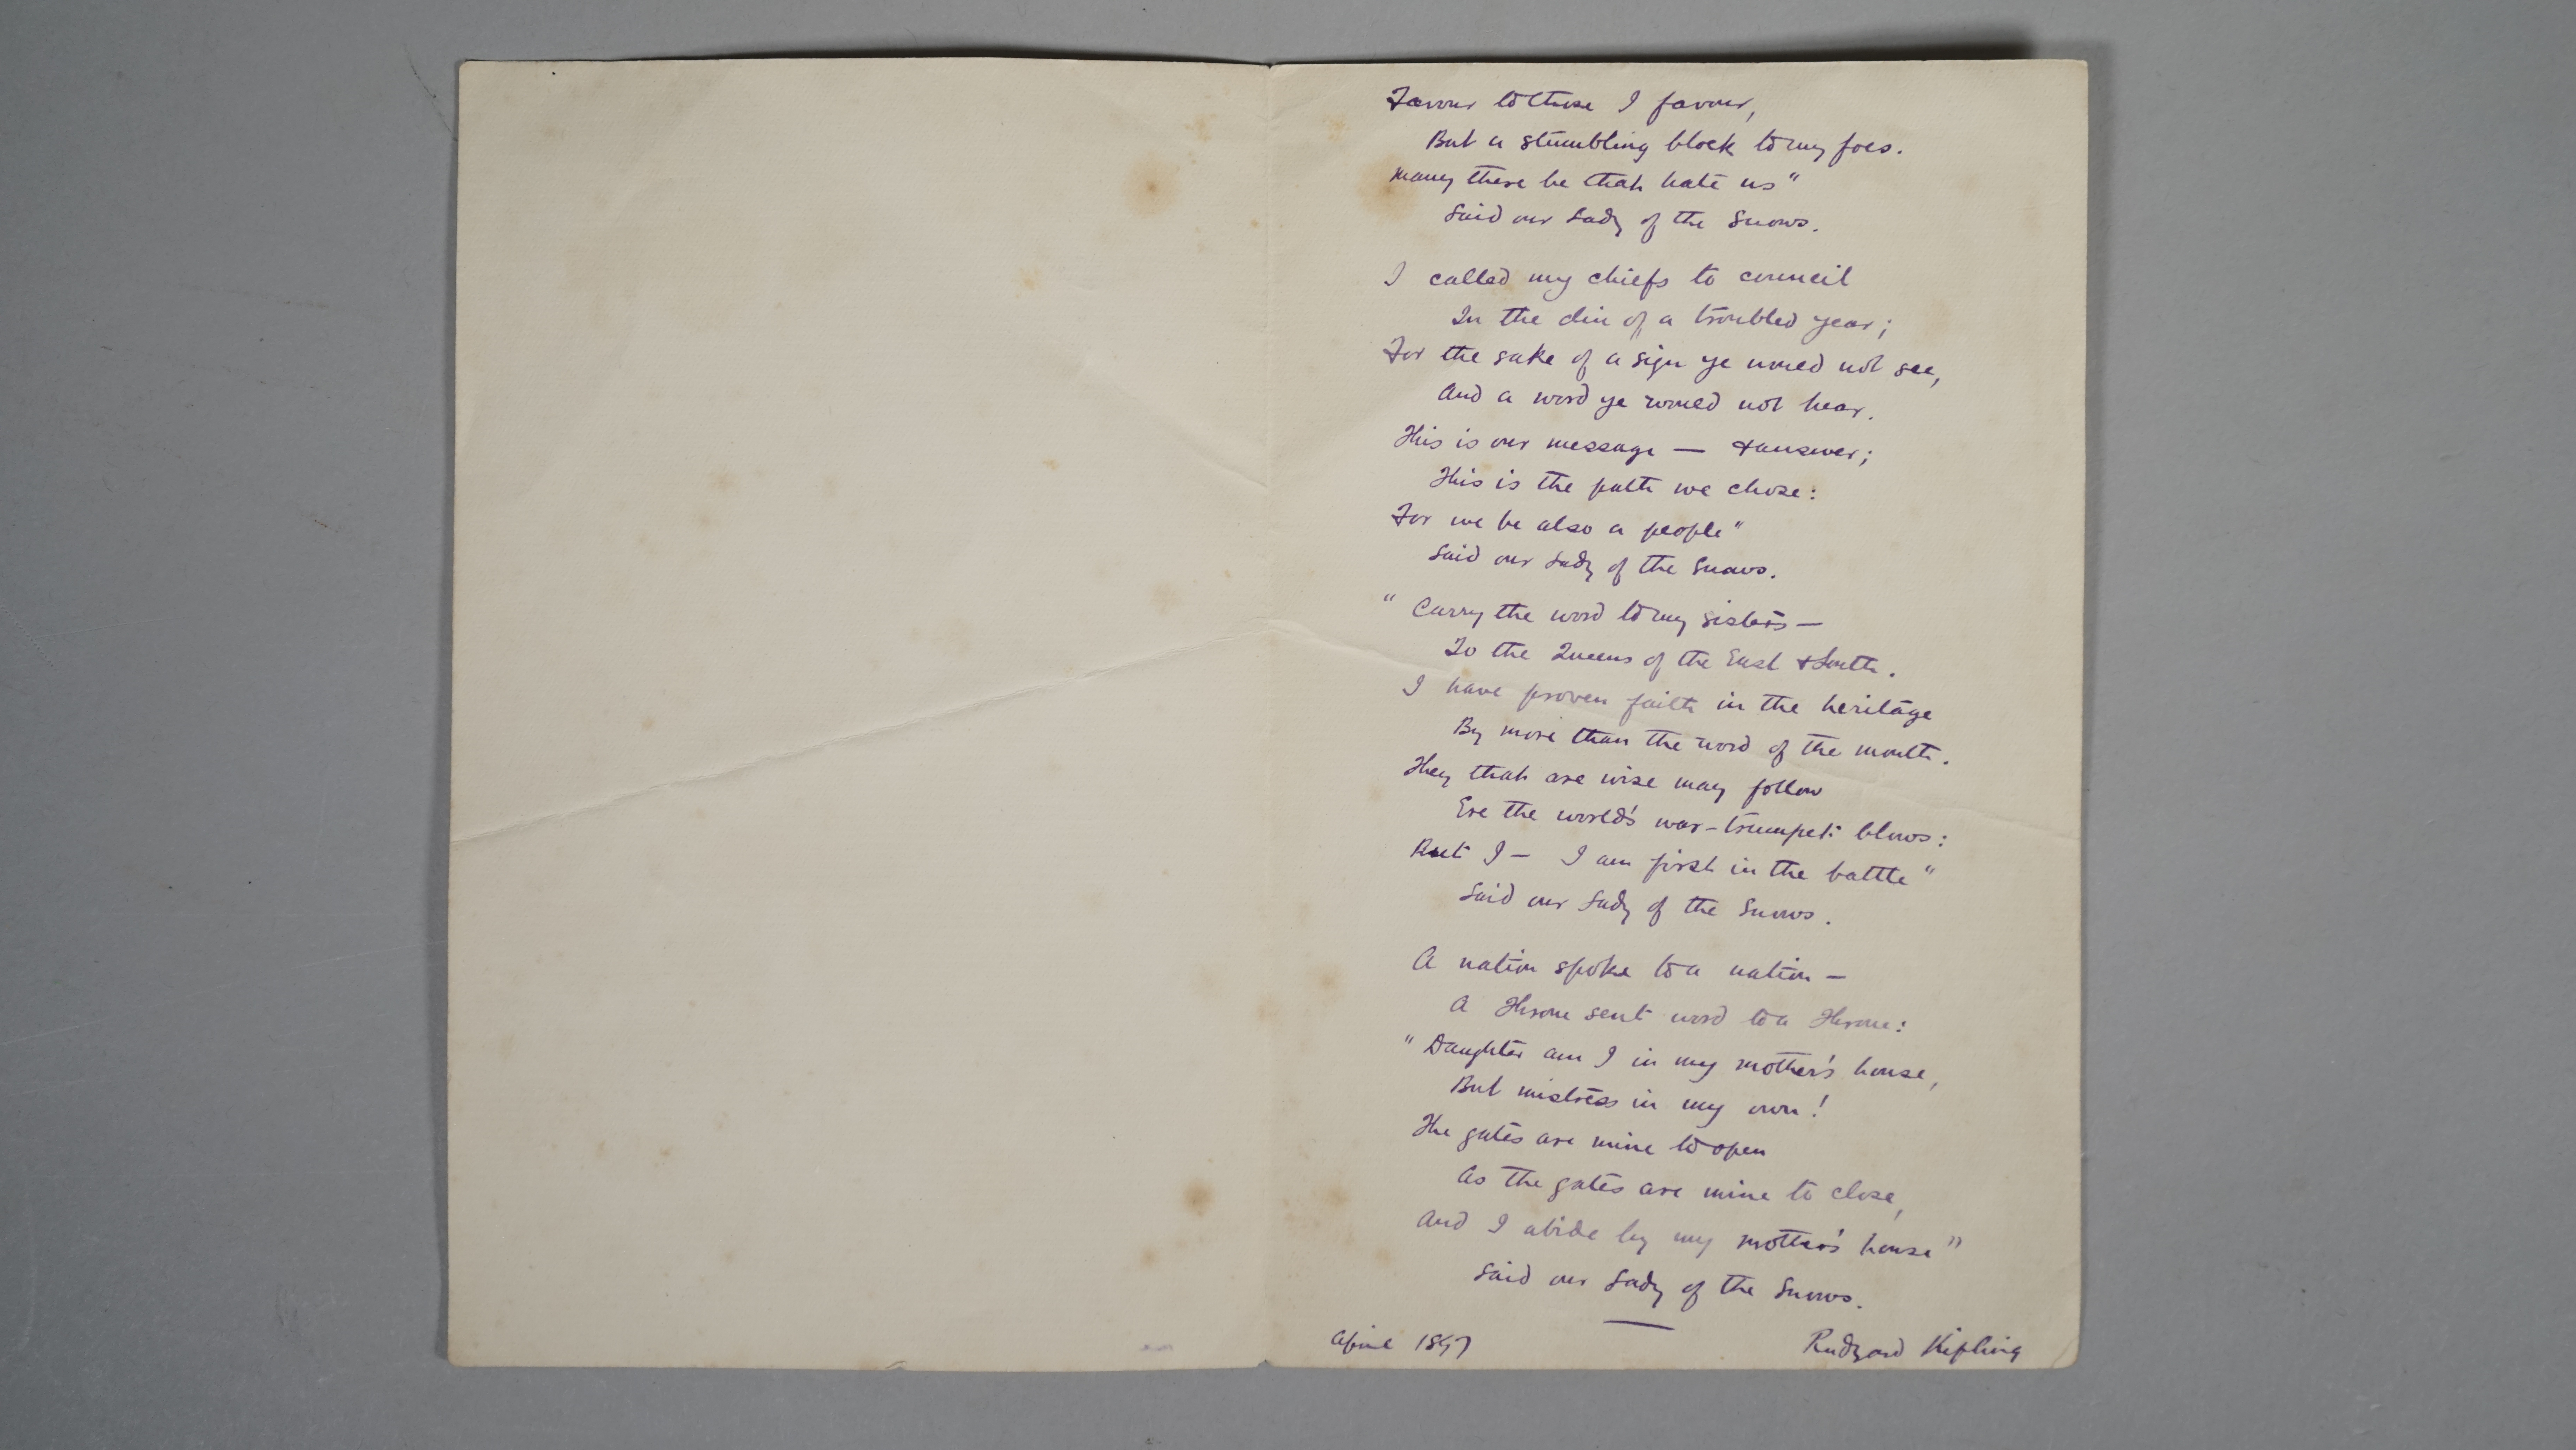 Favour to those I favour,
But a stumbling block to my foes.
Many there be that hate us"
Said our Lady of the Snows.
I called my chiefs to council
In the din of a troubled year;
For the sake of a sign ye would not see,
And a word ye would not hear.
This is our message — & answer;
This is the path we chose:
For we be also a people"
Said our Lady of the Snows.
"Carry the word to my sisters —
To the Queens of the East & South.
I have proven faith in the heritage
By more than the word of the mouth.
They that are wise may follow
Ere the world's war-trumpet blows:
But I — I am first in the battle"
Said our Lady of the Snows.
A nation spoke to a nation —
A Throne sent word to a Throne:
"Daughter am I in my mother's house,
But mistress in my own!
The gates are mine to open
As the gates are mine to close,
And I abide by my mother's house"
Said our Lady of the Snows.
April 1897 Rudyard Kipling